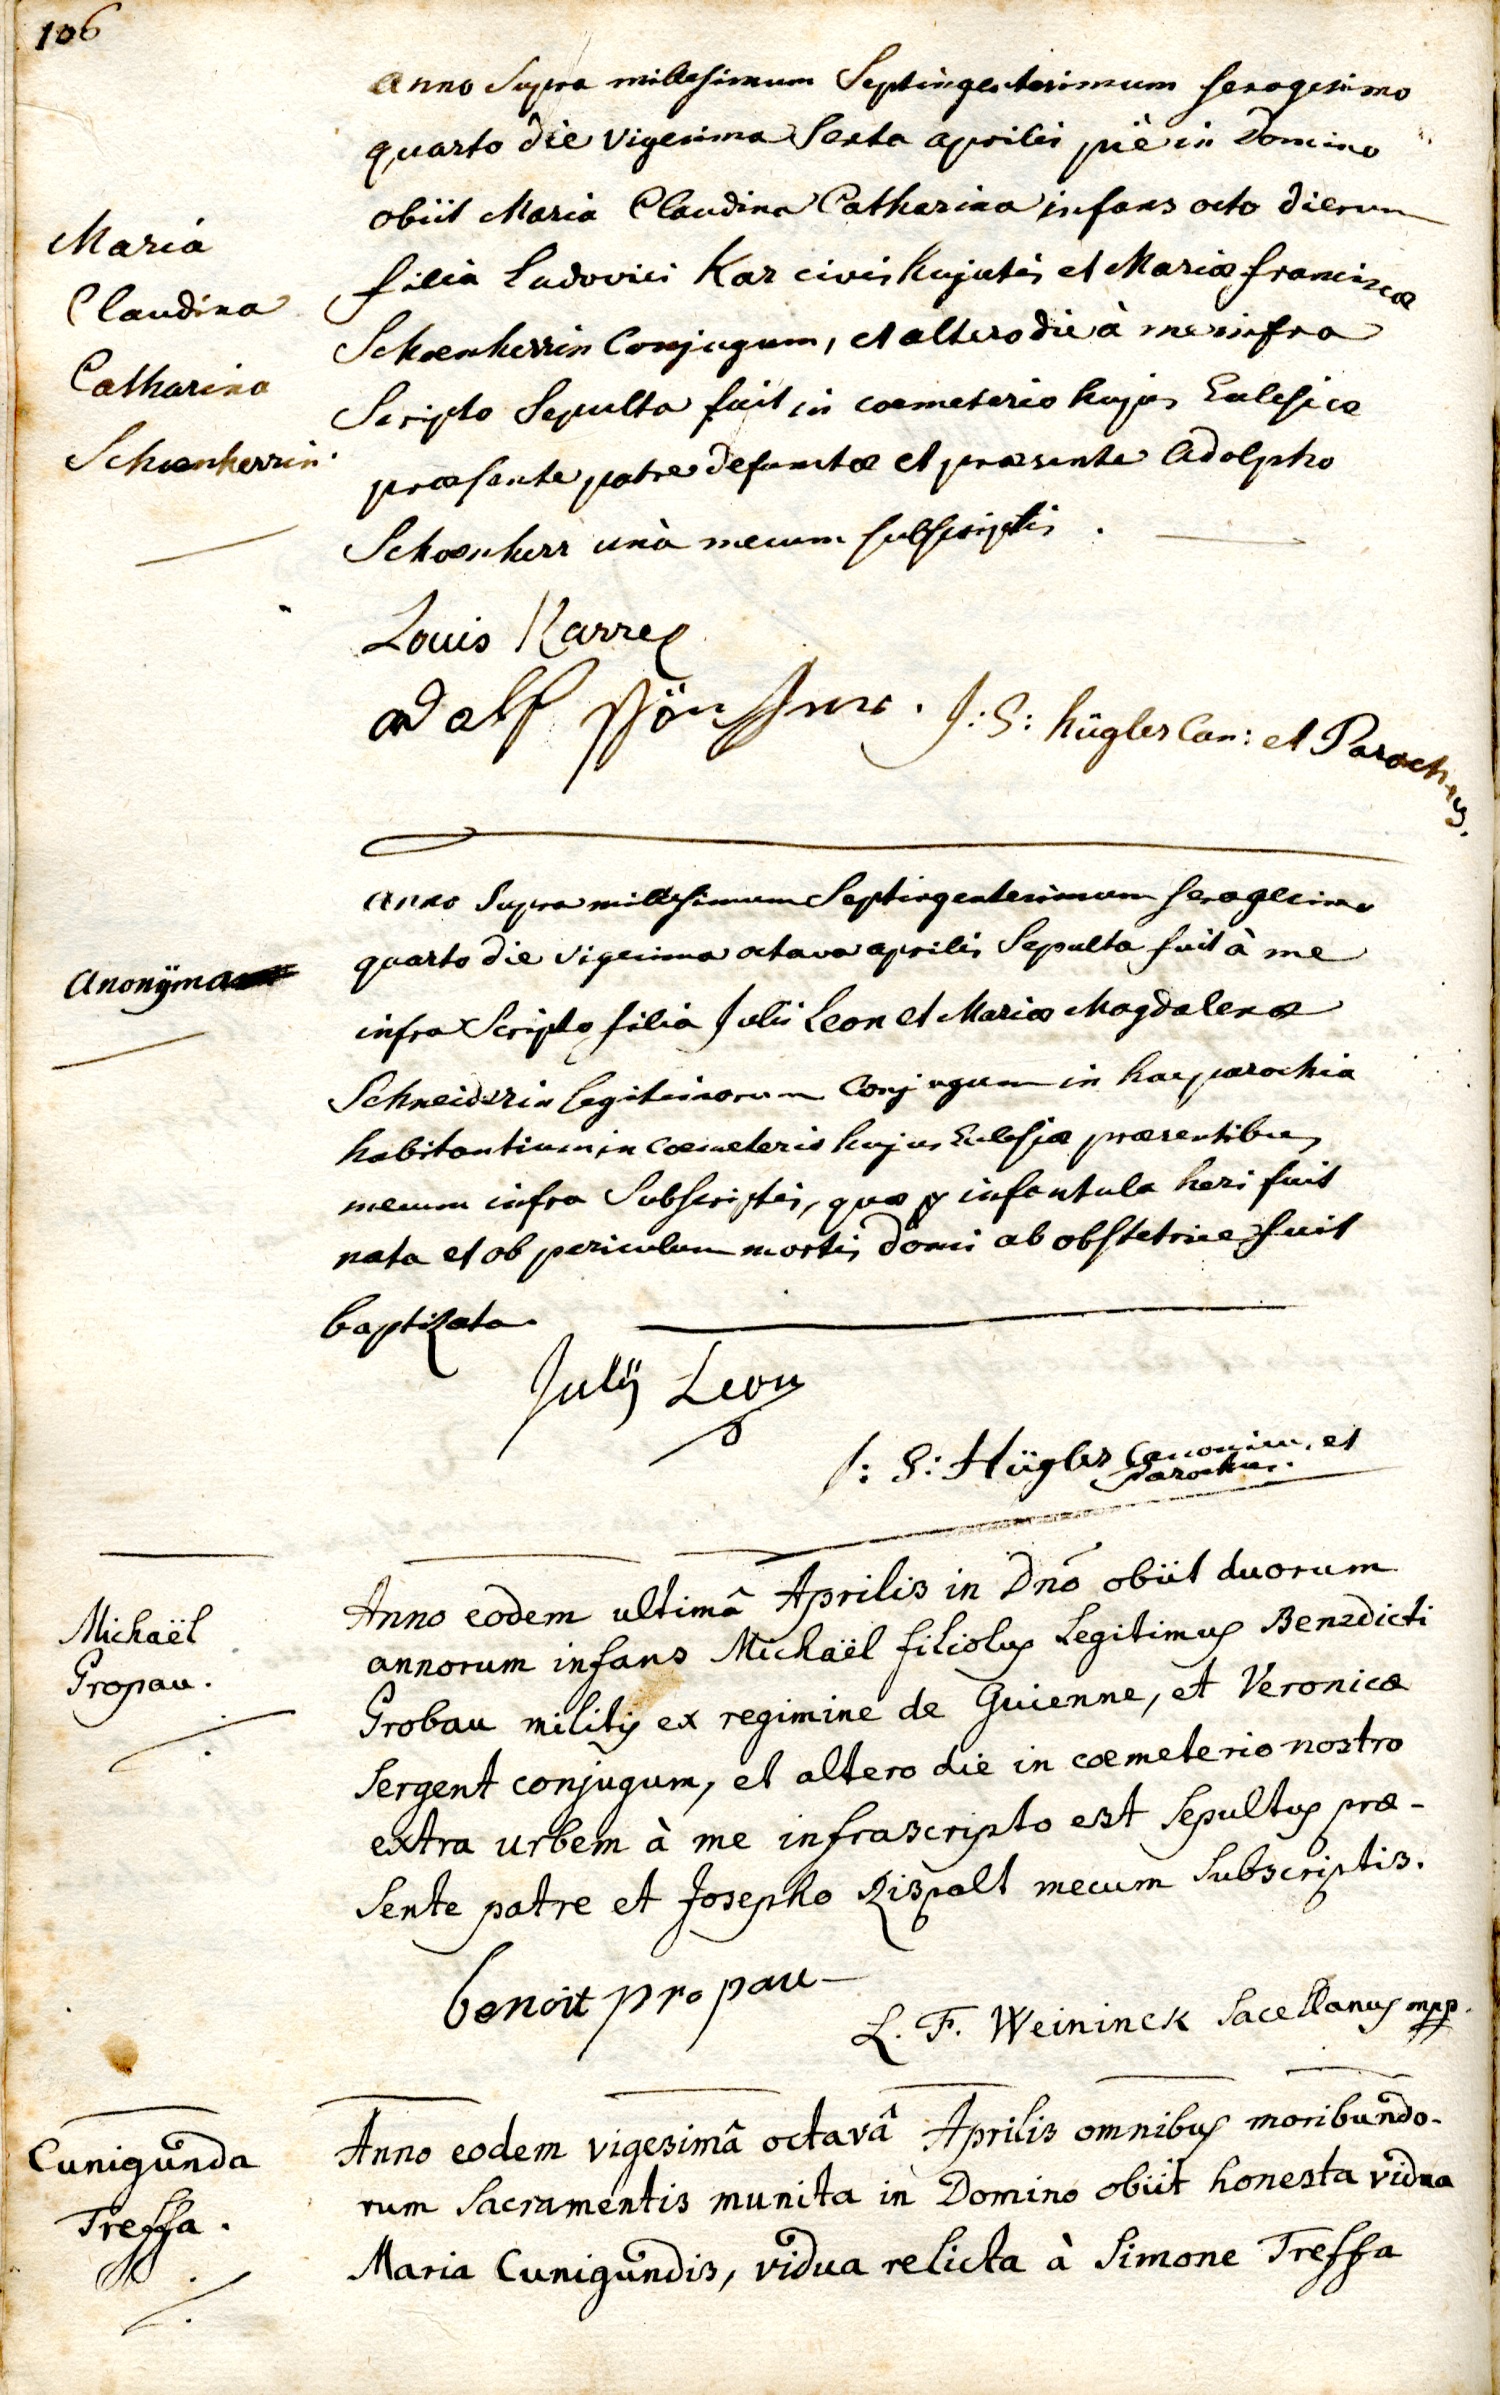 106
Anno Supra millesimum Septingentesimum sexagesimo
quarto die vigesima Sexta aprilis piè in Domino
obiit Maria Claudina Catharina infans octo dierum
filia Ludovici Kar civis hujatis et Mariæ franciscæ
Schœnherrin Conjugum, et altero die à me infra
Scripto Sepulta fuit in cœmeterio hujus Eclesiæ
præsente patre defunctæ et præsente Adolpho
Schœnherr unà mecum subscriptis.
Maria
Claudina
Catharina
Schœnherrin.
Louis Karre
adolf
J: S: hügler Can: et Parochus.
Anno Supra millesimum Septingentesimum sexagesimo
quarto die vigesima octava aprilis Sepulta fuit à me
infra Scripto filia Julii Leon et Mariæ Magdalenæ
Schneiderin legitimorum Conjugum in hac parochia
habitantium in Cœmeterio hujus Eclesiæ præsentibus
mecum infra Subscriptis, quæ infantula heri fuit
nata et ob periculum mortis domi ab obstetrice fuit
baptizata.
Anonÿma
Julÿ Leon
J: S: Hügler Canonicus et
Parochus.
Anno eodem ultimâ Aprilis in Dnō obiit duorum
annorum infans Michaël filiolus Legitimus Benedicti
Grobau militis ex regimine de Guienne, et Veronicæ
Sergent conjugum, et altero die in cœmeterio nostro
extra urbem à me infrascripto est Sepultus præ-
sente patre et Josepho Rispalt mecum Subscriptis.
Michaël
Gropau.
benoit propau
L. F. Weininck Sacellanus mpp.
Anno eodem vigesimâ octavâ Aprilis omnibus moribundo-
rum Sacramentis munita in Domino obiit honesta vidua
Maria Cunigundis, vidua relicta à Simone Treffa
Cunigunda
Treffa.